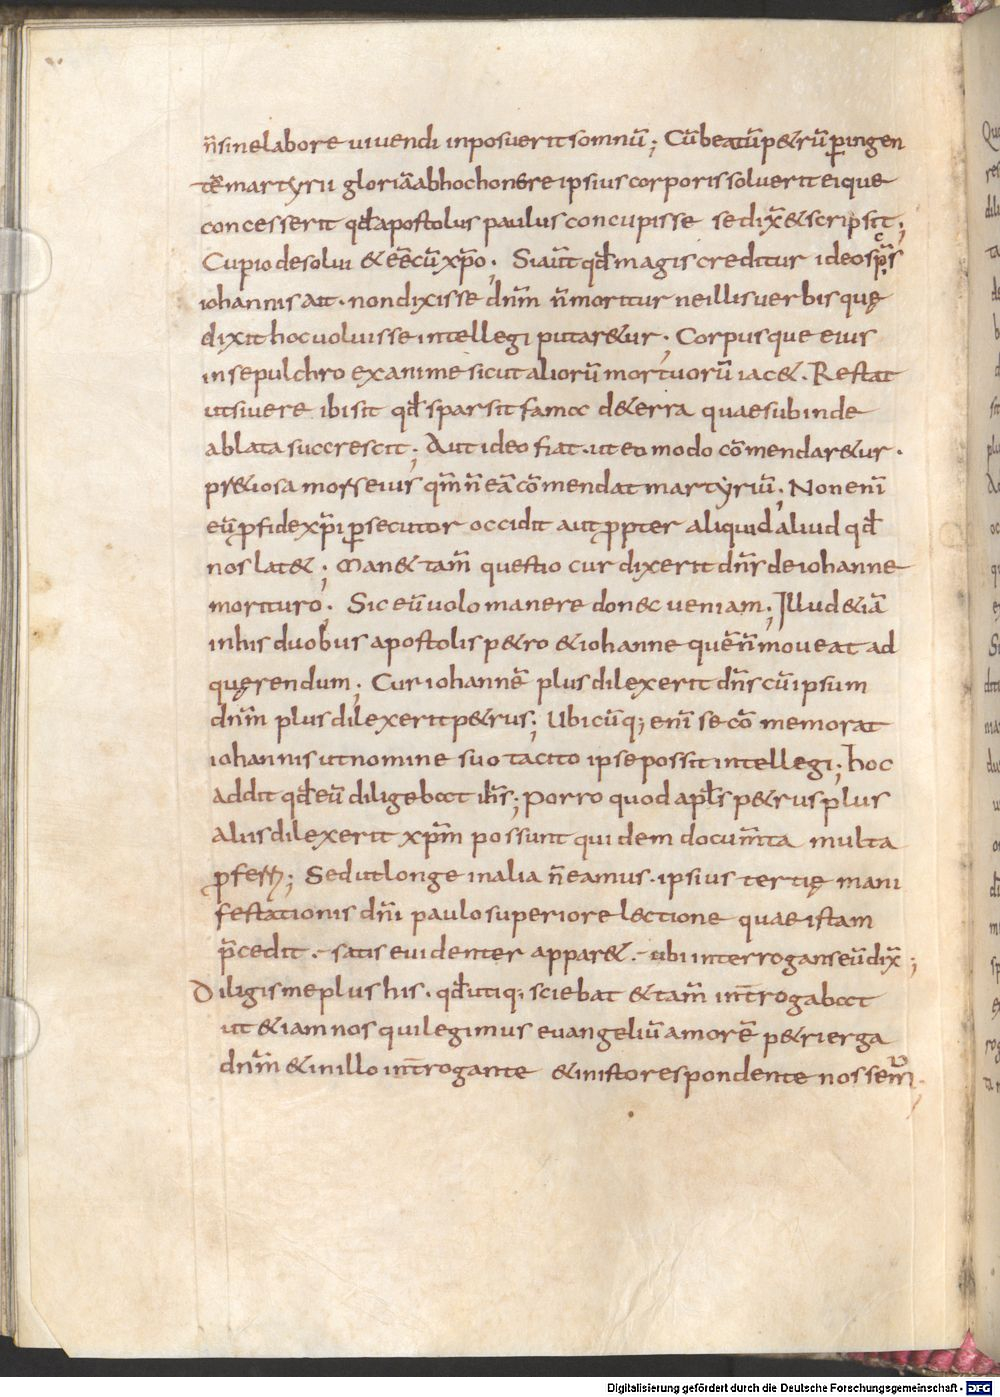 n̄ sine labore uiuendi inposuerit somnū; Cū beatū p&rū p̱ ingen
tē martyrii gloriā ab hoc honere ipsius corporis soluerit eique
concesserit qđ apostolus paulus concupisse se dix̄ & scripsit;
Cupio desolui & eē cū xp̄o; Si aūt qđ magis creditur ideo sc̄s
iohannis ait · non dixisse dn̄m n̄ moritur ne illis uerbis quę
dixit hoc uoluisse intellegi putar&ur; Corpusque eius
in sepulchro exanime sicut aliorū mortuorū iac& · Restat
ut si uere ibi sit qđ sparsit fama de terra quae subinde
ablata succrescit; Aut ideo fiat · ut eo modo cōmendar&ur ·
p&iosa mors eius qm̄ n̄ eā cōmendat martyriū; Non enī
eū p fide xp̄i p̱secutor occidit aut p̱pter aliquid aliud qđ
nos lat&; Man& tam̄ questio cur dixerit dn̄s de iohanne
morituro · Sic eū uolo manere donec ueniam; Illud &iā
in his duobus apostolis p&ro & iohanne quē n̄ moueat ad
quęrendum; Cur iohannē plus dilexerit dn̄s cū ipsum
dn̄m plus dilexerit p&rus; Ubicūq; enī se cō memorat
iohannis ut nomine suo tacito ipse possit intellegi; hoc
addit qđ eū diligebat ih̄s; Porro quod apl̄s p&rus plus
aliis dilexerit xp̄m possunt quidem docum̄ta multa
pferri; Sed ut longe in alia n̄ eamus · ipsius tertię mani
festationis dn̄i paulo superiore lectione quae istam
p̄cedit · satis euidenter appar& · ubi interrogans eū dix̄;
Diligis me plus his · qđ utiq; sciebat & tam̄ int̄rogabat
ut &iam nos qui legimus euangeliū amorē p&ri erga
dn̄m & in illo int̄rogante & in isto respondente nossem̄;
Digitalisierung gefördert durch die Deutsche Forschungsgemeinschaft - DFG